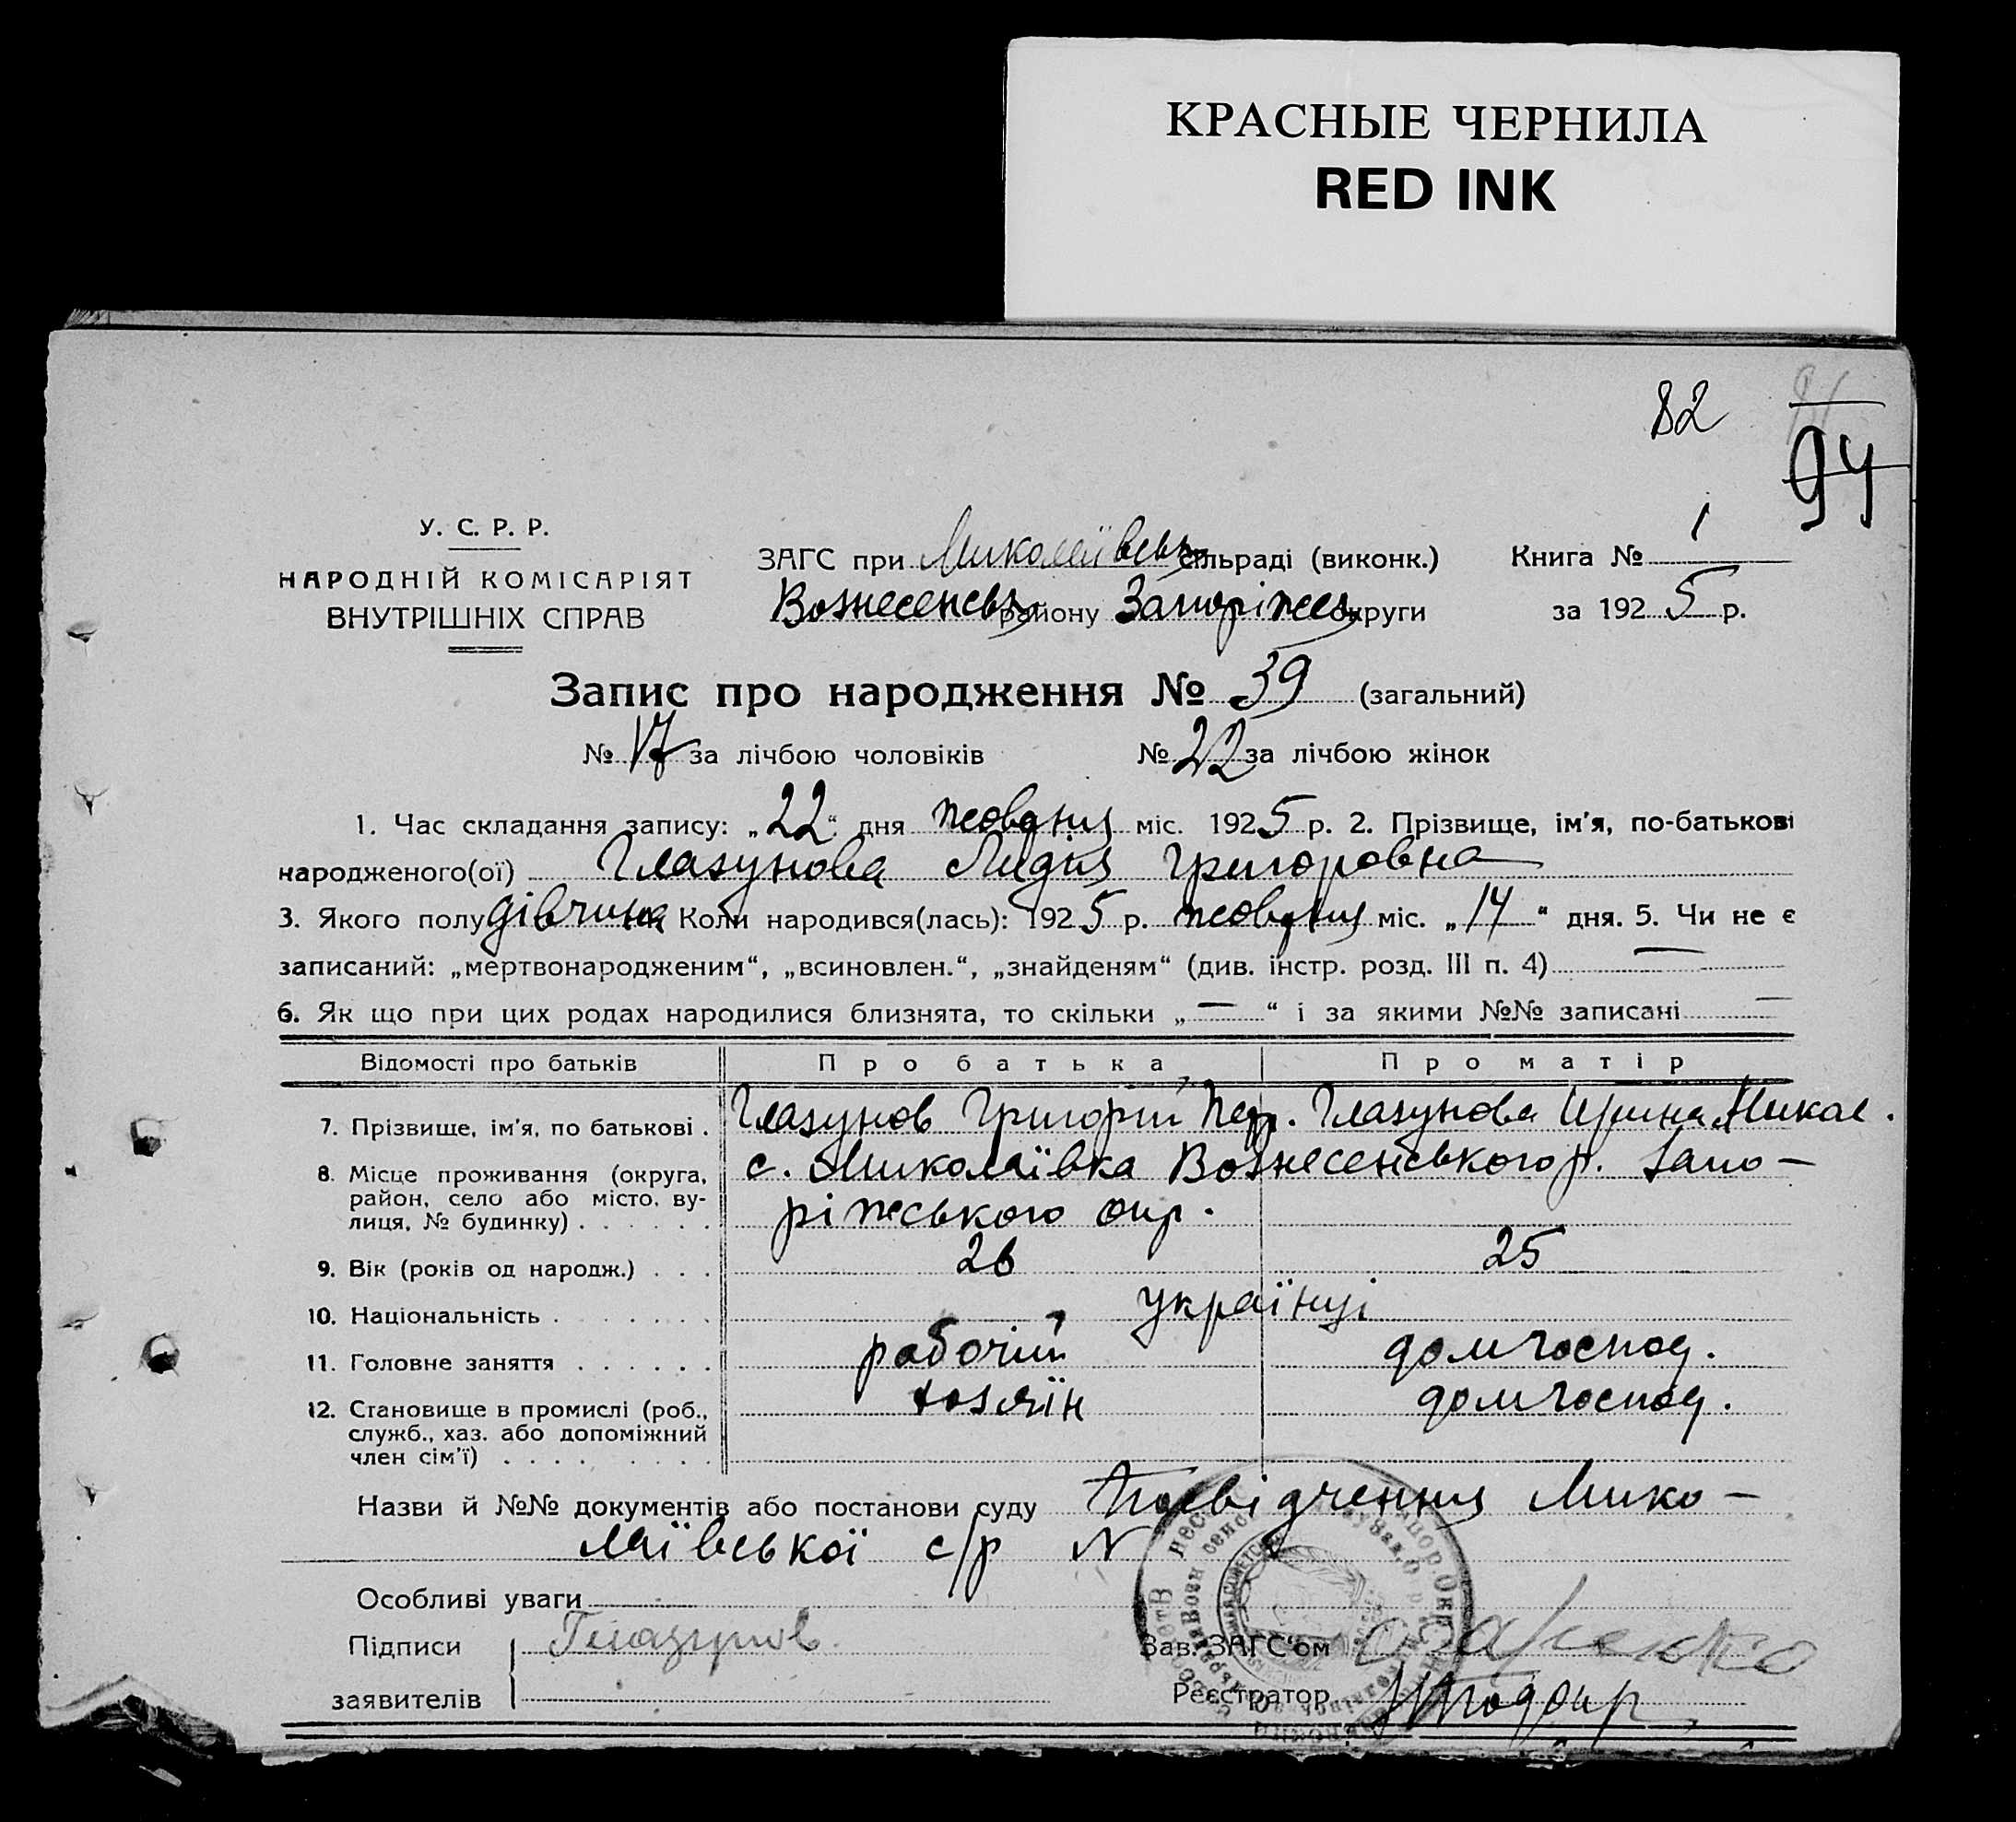 КРАСНЫЕ ЧЕРНИЛА
RED INK
82
94
У. С. Р. Р.
НАРОДНІЙ КОМІСАРІЯТ
ВНУТРІШНІХ СПРАВ
ЗАГС при Миколаївськ сільраді (виконк.) Книга № 1
Вознесенськ району Запоріжськ округи за 1925 р.
Запис про народження № 39 (загальний)
№ 17 за лічбою чоловіків № 22 за лічбою жінок
1. Час складання запису: „22“ дня жовтня міс. 1925 р. 2. Прізвище, ім'я, по-батькові
народженого(ої) Глазунова Лидія Григоровна
3. Якого полу дівчина Коли народився(лась): 1925 р. жовтня міс. „14“ дня. 5. Чи не є
записаний: „мертвонародженим“, „всиновлен.“, „знайденям“ (див. інстр. розд. III п. 4) —
6. Як що при цих родах народилися близнята, то скільки „—“ і за якими №№ записані —
Відомості про батьків Про батька Про матір
7. Прізвище, ім'я, по батькові . Глазунов Григорій Глазунова Ирина Никол.
8. Місце проживання (округа, с. Миколаївка Вознесенського р. Запо-
район, село або місто, ву-
лиця, № будинку) . . . . . . ріжського окр.
9. Вік (років од народж.) . . . 26 25
10. Національність . . . . . . . українці
11. Головне заняття . . . . . . рабочий домгоспод.
12. Становище в промислі (роб., хозяїн домгоспод.
служб., хаз. або допоміжний
член сім'ї) . . . . . . . . .
Назви й №№ документів або постанови суду Посвідчення Мико-
лаївської с/р N
Особливі уваги
Підписи Глазунов
заявителів
Зав. ЗАГС'ом
Реєстратор